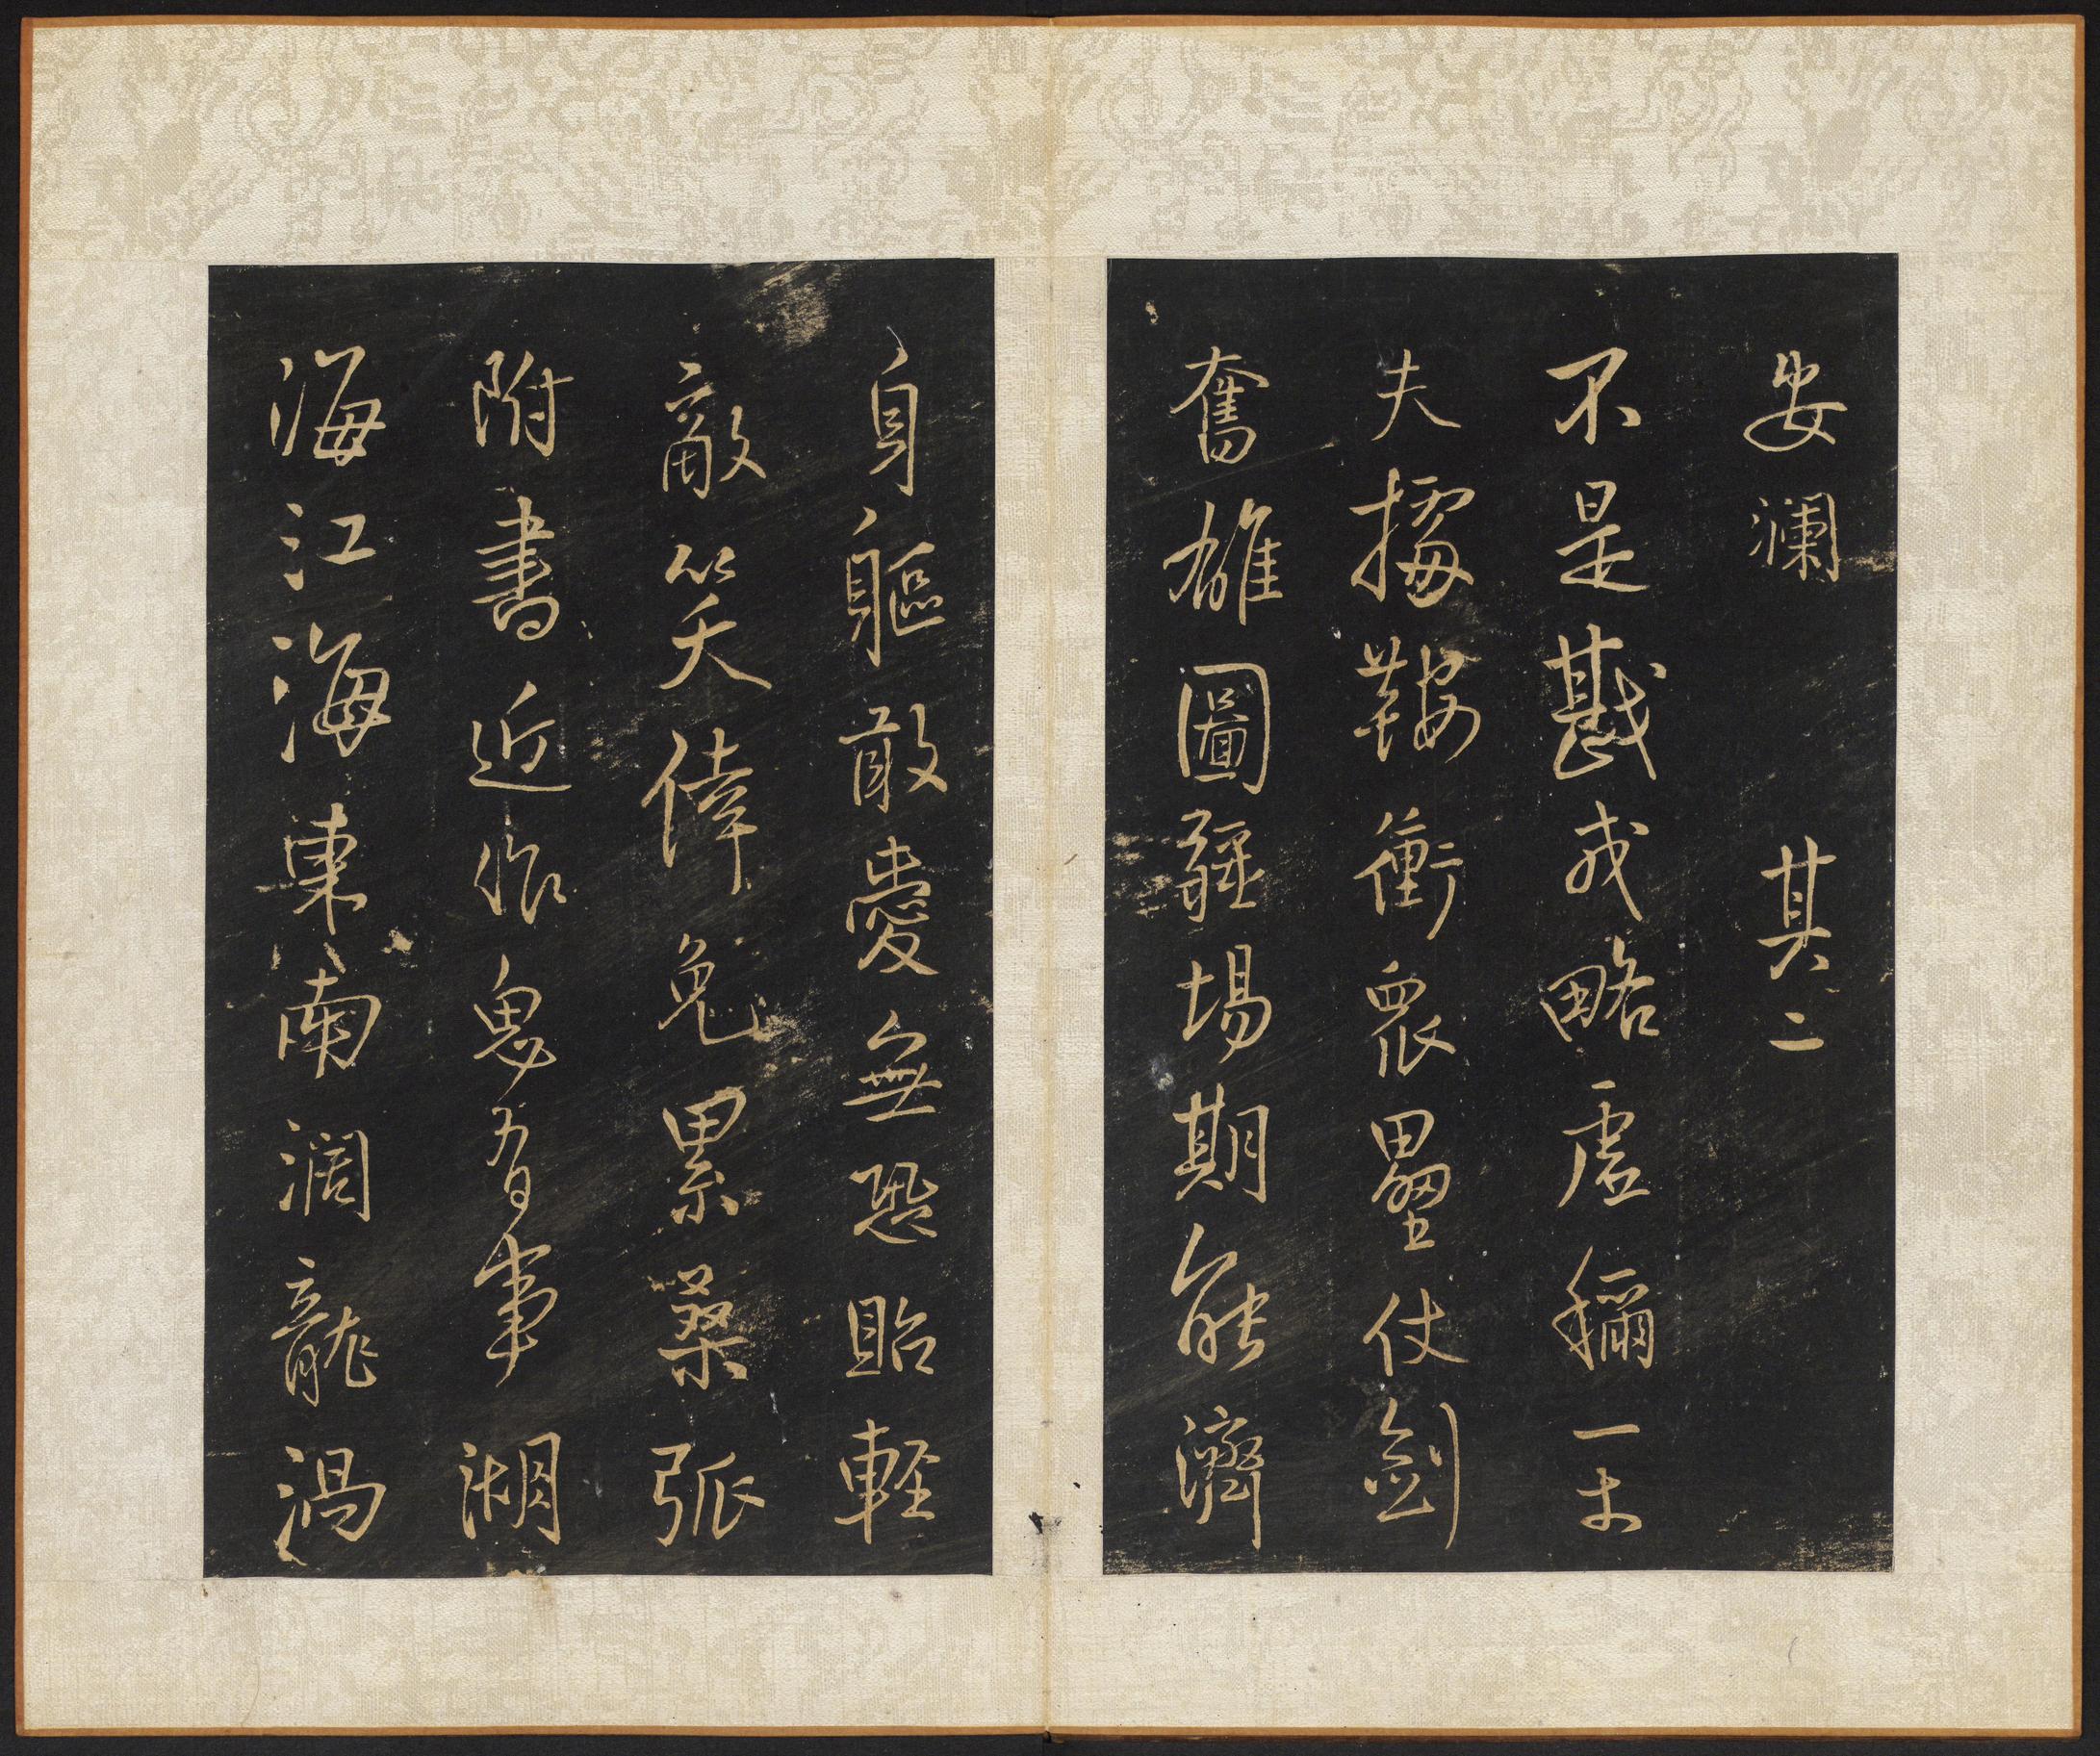 安瀾　其二
不是戡戎略虛稱一丈
夫據鞍衝衆壘仗劍
奮雄圖疆場期能濟
身軀敢愛無恐貽輕
敵笑倖免累桑弧
附書近作有事湖
海江海東南濶龍渦